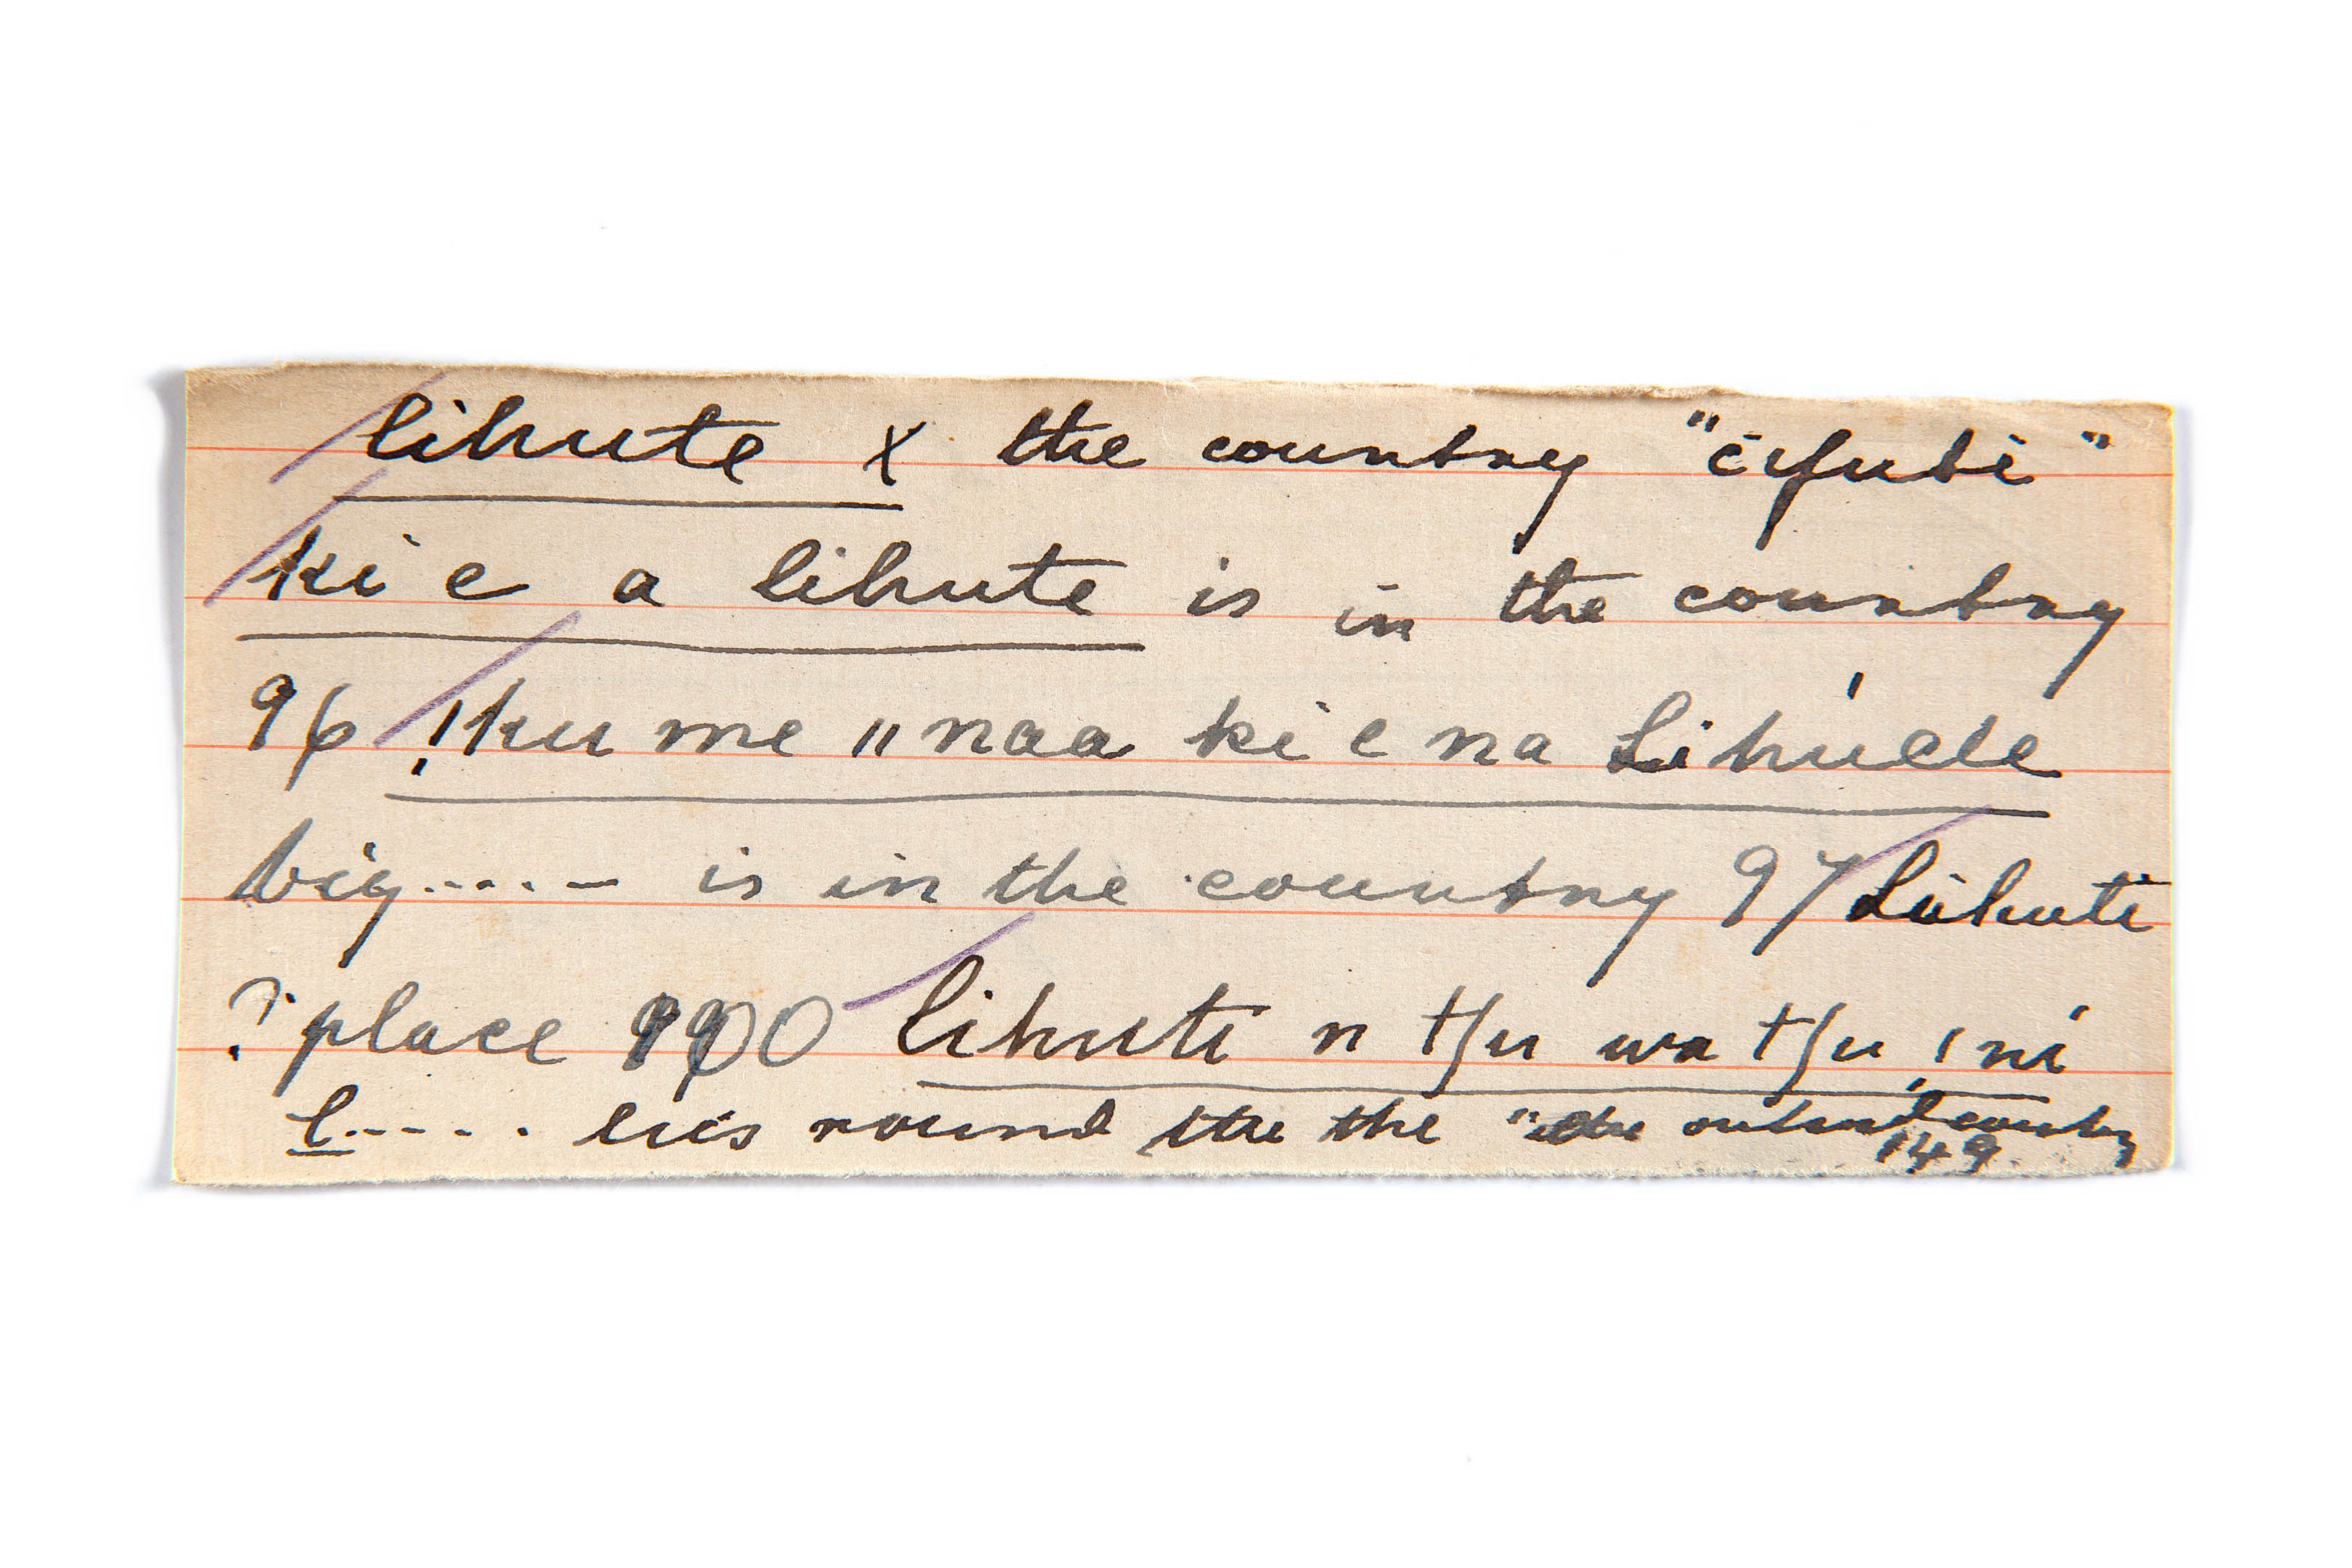 lihute x the country "čifubi"
ki e a lihute is in the country
96 !ku me "naa ki e na Lihuele
big....- is in the country 97 Lihuti
? place 990 lihuti n t/u wa t/u !ni
l----. lies round the the "the country
149